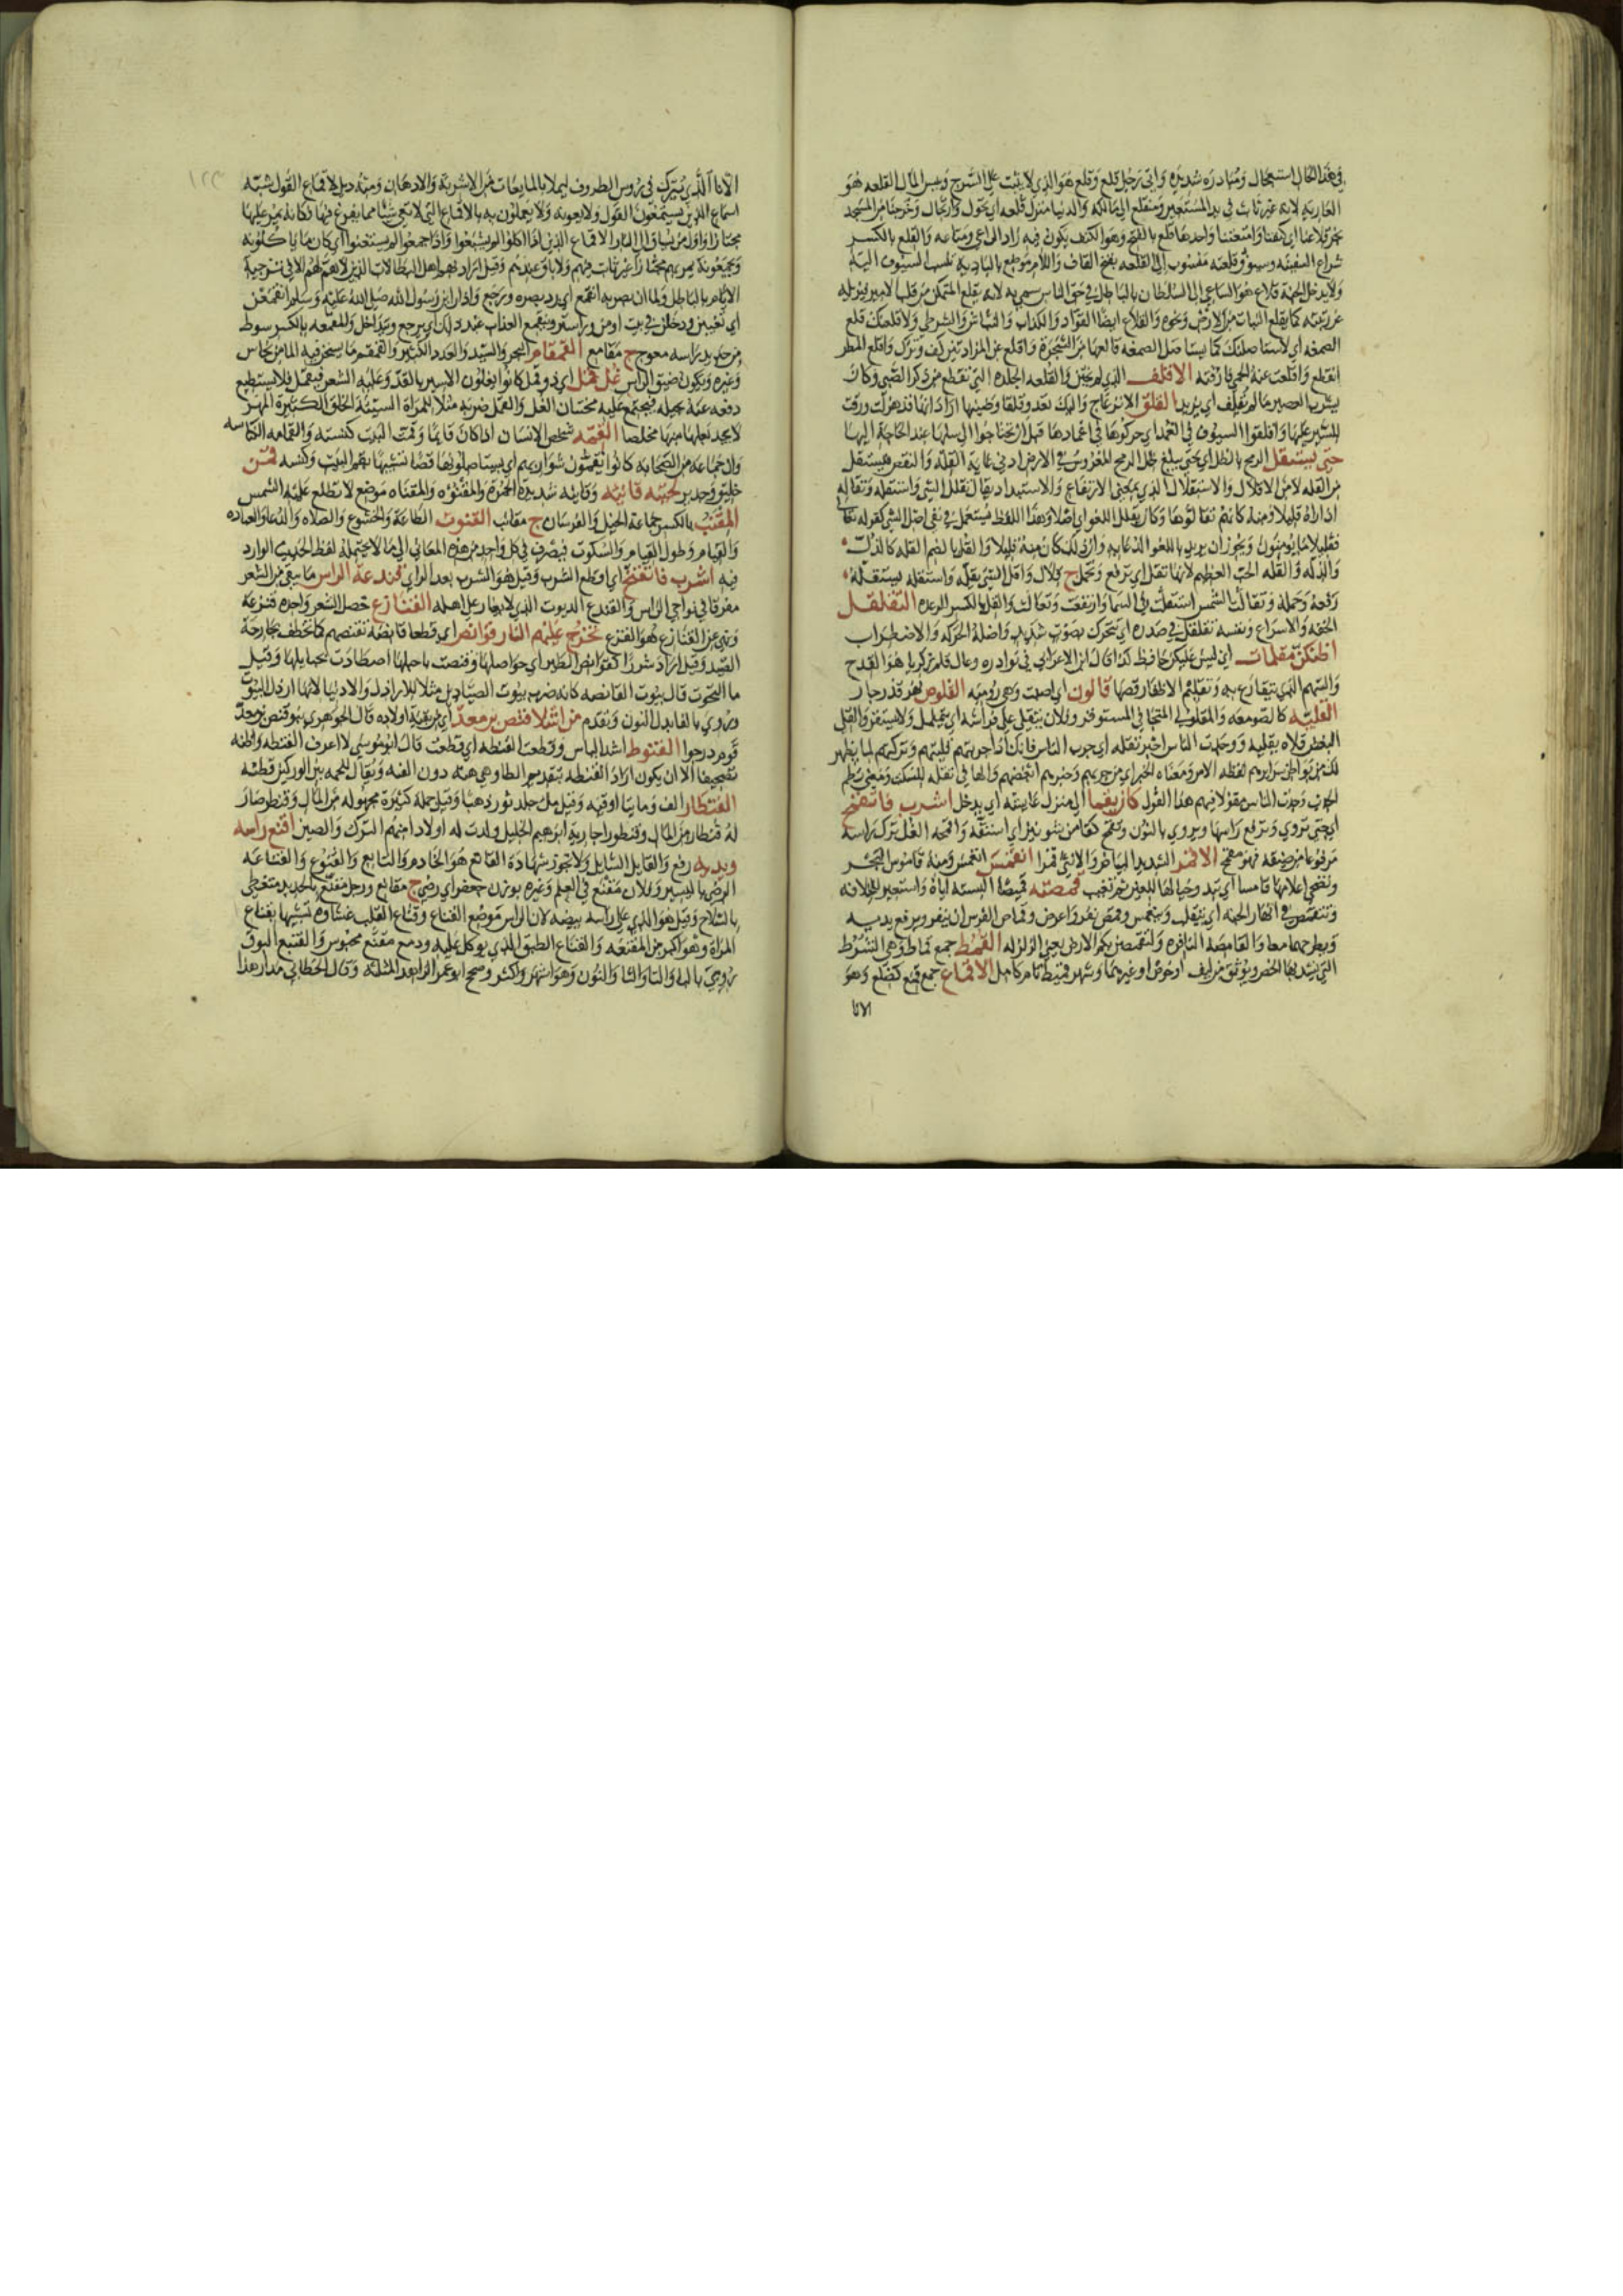 في هذا الحال استعجال ومبادرة شديدة واني رجل قلع وقلع هو الذي لا يثبت على السرج وبئس المال القلعه هو
العاريه لانه غير ثابت في يد المستعير ومنقلع الى مالكه والدنيا منزل قلعه اي تحول وارتحال وخرجنا من المسجد
نجر قلاعنا اي كنفنا وامتعتنا واحدها قلع بالفتح وهو الكنف يكون فيه زاد الراعي ومتاعه والقلع بالكسر
شراع السفينه وسيوف قلعيه منسوب الى القلعه بفتح القاف واللام موضع بالباديه تنسب السيوف اليه
ولا يدخل الجنة قلاع هو الساعي الى السلطان بالباطل في حق الناس سمي به لانه يقلع المتمكن من قلب الامير فيزيله
عن رتبته كما يقلع النبات من الارض ونحوه والقلاع ايضا القواد والكذاب والنباش والشرطي ولاقلعنك قلع
الصمغه اي لاستاصلنك كما يستاصل الصمغه قالعها من الشجرة واقلع عن المزادتين كف وترك واقلع المطر
انقطع واقلعت عنه الحمى فارقته الاقلف الذي لم يختن والقلفه الجلده التي تقطع من ذكر الصبي وكان
يشرب العصير ما لم يقلف اي يزبد القلق الانزعاج واليك تعدو قلقا وضينها اراد انها قد هزلت ورقت
للسير عليها واقلقوا السيوف في الغمد اي حركوها في اغمادها قبل ان تحتاجوا الى سلها عند الحاجة اليها
حتى يستقل الرمح بالظل اي حتى يبلغ ظل الرمح المغروس في الارض ادنى غاية القلة والنقص فيستقل
من القله لا من الاقلال والاستقلال الذي بمعنى الارتفاع والاستبداد يقال تقلل الشي واستقله وتقاله
اذا راه قليلا ومنه كانهم تقالوها وكان يقلل اللغو اي اصلا وهذا اللفظ يستعمل في نفي اصل الشي كقوله تعالى
فقليلا ما يؤمنون ويجوز ان يريد باللغو الدعابه وان ذلك كان منه قليلا والقل بالضم القله كالذل
والذله والقله الحب العظيم لانها تقل اي ترفع وتحمل ج قلال واقل الشي يقله واستقله يستقله
رفعه وحمله وتقالت الشمس استقلت في السما وارتفعت وتعالت والقل بالكسر الرعده التقلقل
الخفه والاسراع ونفسه تقلقل في صدره اي تتحرك بصوت شديد واصله الحركه والاضطراب
اظنكن مقلمات اي ليس عليكن حافظ كذا قال ابن الاعرابي في نوادره وعال قلم زكريا هو القدح
والسهم الذي يتقارع به وتقليم الاظفار قصها قالون اي اصبت وهي روميه القلوص نهر قذر جار
القليه كالصومعه والمقلولي المتجافي المستوفز وفلان يتقلى على فراشه اي يتململ ولا يستقر والقلى
البغض قلاه يقليه ووجدت الناس اخبر تقله اي جرب الناس فانك اذا جربتهم قليتهم وتركتهم لما يظهر
لك من بواطن سرايرهم لفظه الامر ومعناه الخبر اي من جربهم وخبرهم ابغضهم والها في تقله للسكت ومعنى نظم
الحديث وجدت الناس مقولا فيهم هذا القول كان يقما الى منزل عايشه اي يدخل اشرب فاتقمح
اي حتى تروي وترفع راسها ويروي بالنون وتقمح كفا من شونيز اي استفه واقمحه الغل ترك راسه
مرفوعا من ضيقه فهو مقمح الاقمر الشديد البياض والانثى قمرا انقمس انغمس ومنه قاموس البحر
وتضحى اعلامها قامسا اي تبدو جبالها للعين ثم تغيب قمصته قميصا البسته اياه واستعير للخلافه
وتتقمص في انهار الجنه اي يتقلب وينغمس وقمص نفر واعرض وقماص الفرس ان ينفر ويرفع يديه
ويطرحهما معا والقامصه النافره ولتقمصن بكم الارض يعني الزلزله القمط جمع قماط وهي الشرط
التي يشد بها الخص ويوثق من ليف او خوص او غيرهما وشهر قميط تام كامل الاقماع جمع قمع كضلع وهو
الانا
١٢٣
الانا الذي يترك في رؤس الظروف ليملا بالمايعات من الاشربة والادهان ومنه ويل لاقماع القول شبه
اسماع الذين يستمعون القول ولا يعونه ولا يعملون به بالاقماع التي لا تعي شيا مما يفرغ فيها فكانه يمر عليها
مجتازا واول من يساق الى النار الاقماع الذين اذا اكلوا لم يشبعوا واذا جمعوا لم يستغنوا اي كان ما ياكلونه
ويجمعونه يمر بهم مجتازا غير ثابت فيهم ولا باق عندهم وقيل اراد بهم اهل البطالات الذين لا هم لهم الا في تزجية
الايام بالباطل ولما ان بصر به انقمع اي رد بصره ورجع واذا راين رسول الله صلى الله عليه وسلم انقمعن
اي تغيبن ودخلن في بيت او من ورا ستر وينقمع العذاب عند ذلك اي يرجع ويتداخل والمقمعه بالكسر سوط
من حديد راسه معوج ج مقامع القمقام البحر والسيد والعدد الكثير والقمقم ما يسخن فيه الما من نحاس
وغيره ويكون ضيق الراس غل قمل اي ذو قمل كانوا يغلون الاسير بالقد وعليه الشعر فيقمل فلا يستطيع
دفعه عنه بحيله فيجتمع عليه محنتان الغل والقمل ضربه مثلا للمراة السيئة الخلق الكثيرة المهر
لا يجد بعلها منها مخلصا القمه شخص الانسان اذا كان قايما وقمت البيت كنسته والقمامه الكناسه
وان جماعة من الصحابه كانوا يقمون شواربهم اي يستاصلونها قصا تشبيها بقم البيت وكنسه قمن
خليق وجدير لحيته قانيه وقانيه شديدة الحمرة والمقنوه والمقناه موضع لا تطلع عليه الشمس
المقنب بالكسر جماعة الخيل والفرسان ج مقانب القنوت الطاعة والخشوع والصلاه والدعا والعباده
والقيام وطول القيام والسكوت فيصرف في كل واحد من هذه المعاني الى ما لا يحتمله لفظ الحديث الوارد
فيه اشرب فاتقنح اي اقطع الشرب وقيل هو الشرب بعد الري قندعة الراس ما يبقى من الشعر
مفرقا في نواحي الراس والقندع الديوث الذي لا يغار على اهله القنازع خصل الشعر واحده قنزعه
ونهى عن القنازع هو القزع تخرج عليهم النار قوانص اي قطعا قانصه تقنصهم كما تخطف الجارحة
الصيد وقيل اراد شررا كقوانص الطير اي حواصلها وقنصت باحبلها اصطادت بحبايلها وقيل
ما التحوت قال بيوت القانصه كانه ضرب بيوت الصيادين مثلا للاراذل والادنيا لانها ارذل البيوت
ويروي بالفا بدل النون وتقدم من اشلا قنص بن معد اي من بقية اولاده قال الجوهري بنو قنص بن معد
قوم درجوا القنوط اشد الياس وقطعت القنطه اي قطعت قال ابو موسى لا اعرف القنطه واظنه
تصحيفا الا ان يكون اراد القنطه بتقديم الطا وهي هنه دون القبه ويقال للحمه بين الوركين قطنه
القنطار الف وماتيا اوقيه وقيل مل جلد ثور ذهبا وقيل جملة كثيرة مجهوله من المال وقنطر صار
له قنطار من المال وقنطورا جارية ابرهيم الخليل ولدت له اولادا منهم الترك والصين اقنع راسه
ويديه رفع والقانع السايل ولا تجوز شهادة القانع هو الخادم والتابع والقنوع والقناعه
الرضى باليسير وفلان مقنع في العلم وغيره بوزن جعفر اي رضي ج مقانع ورجل مقنع بالحديد متغطى
بالسلاح وقيل هو الذي على راسه بيضه لان الراس موضع القناع وقناع القلب غشاوه تشبيها بقناع
المراة وهو اكبر من المقنعه والقناع الطبق الذي يوكل عليه ودمع مقنع محبوس والقنع البوق
يروى بالبا والتا والثا والنون وهو اشهر واكثر وصحح ابو عمر الزاهد المثلثه وقال الخطابي مدار هذا